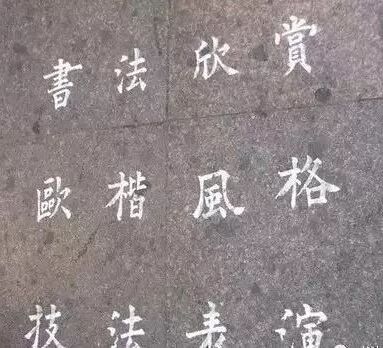 書法欣賞
歐楷風格
技法表演